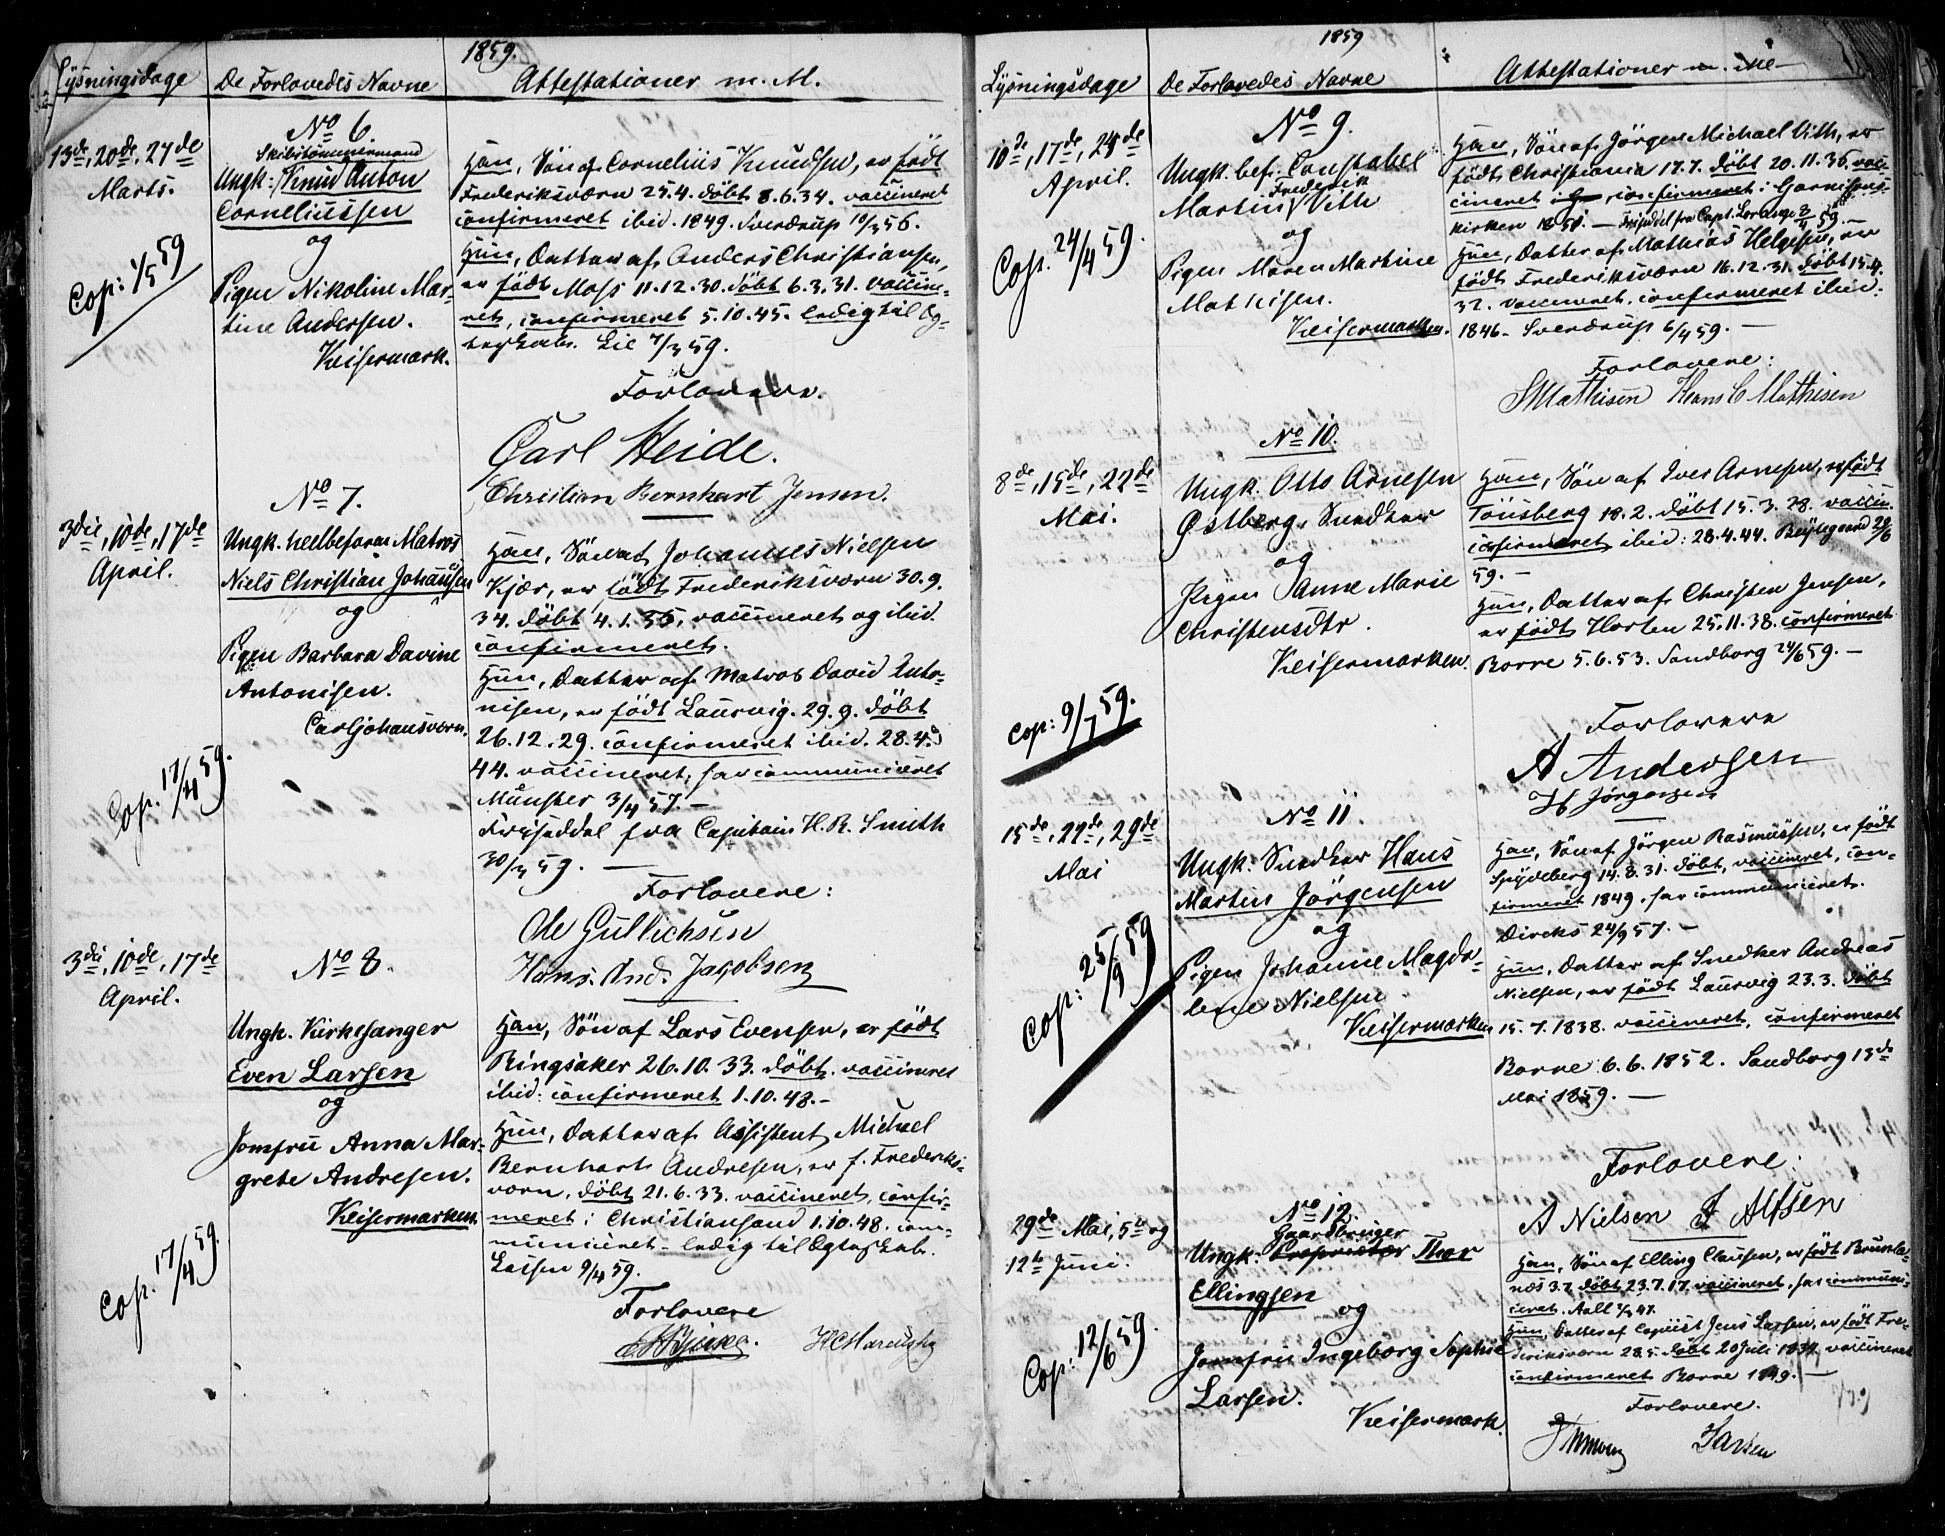 1859.
Lysningsdage
De Forlovedes Navne
Attestationer m. M.
No 6.
13de, 20de, 27de
Marts.
Skibstømmermand
Ungk: Knud Anton
Corneliussen
og
Pigen Nikoline Mar-
tine Andersen.
Keisermark.
Cop: 1/5 59
Han, Søn af Cornelius Knudsen, er født
Frederiksværn 25.4. døbt 8.6.34. vaccineret
confirmeret ibid. 1849. Sverdrup 10/3 56.
Hun, Datter af Anders Christiansen,
er født Moss 11.12.30. døbt 6.3.31. vaccine-
ret, confirmeret 5.10.45. ledig til Æg-
teskab. Lie 7/3 59.
Forlovere.
Carl Heide.
Christian Bernhart Jensen.
No 7.
3die, 10de, 17de
April.
Ungk. heelbefaren Matros
Niels Christian Johannsen
og
Pigen Barbara Davine
Antonisen.
Carljohansværn.
Cop. 17/4 59.
Han, Søn af Johannes Nielsen
Kjær, er født Frederiksværn 30.9.
34. døbt 4.1.35, vaccineret og ibid.
confirmeret.
Hun, Datter af Matros David Anto-
nisen, er født Laurvig. 29.9. døbt
26.12.29. confirmeret ibid. 28.4.
44. vaccineret, har communiceret
Münster 3/4 57. —
Friseddel fra Capitain H. R. Smith
30/3 59. —
Forlovere:
Ole Gullichsen
Hans. And. Jacobsen
No 8.
3die, 10de, 17de
April.
Ungk. Kirkesanger
Even Larsen
og
Jomfru Anna Mar-
grete Andresen.
Keisermarken.
Cop. 17/4 59.
Han, Søn af Lars Evensen, er født
Ringsaker 26.10.33. døbt. vaccineret
ibid. confirmeret 1.10.48. –
Hun, Datter af Assistent Michael
Bernhart Andresen, er f. Frederiks-
værn, døbt 21.6.33. vaccineret, confir-
meret i Christiansand 1.10.48. com-
municeret – ledig til Ægteskab.
Lassen 9/4 59.
Forlovere
1859
Lysningsdage
De Forlovedes Navne
Attestationer m. M
No 9.
10de, 17de, 24de
April.
Ungk. bef. Constabel
Frederik
Martius Vith
og
Pigen Maren Martine
Mathisen.
Keisermarken.
Cop. 24/4 59.
Han, Søn af Jörgen Michael Vith, er
født Christiania 17.7. døbt 20.11.36. vac-
cineret confirmeret i Garnisons-
kirken 1851. — Friseddel fra Capt. 8/4 59. —
Hun, Datter af Mathias Helgesen, er
født Frederiksværn 16.12.31. døbt 15.4.
32. vaccineret, confirmeret ibid.
1846. Sverdrup 6/4 59. —
Forlovere:
S Mathisen Hans C Mathisen
No 10.
8de, 15de, 22de
Mai.
Ungk. Otto Arnesen
Østberg. Snedker
og
Pigen Anne Marie
Christensdtr.
Keisermarken.
Cop: 9/7 59.
Han, Søn af Iver Arnesen, er født
Tönsberg 18.2. døbt 15.3.28. vaccin.
confirmeret ibid: 28.4.44.
59. —
Hun, Datter af Christen Jensen,
er født Horten 25.11.38. confirmeret
Borre 5.6.53. Sandborg 24/6 59. —
Forlovere
A Andersen
H Jörgensen
No 11.
15de, 22de, 29de
Mai
Ungk: Snedker Hans
Martin Jörgensen
og
Pigen Johanne Magda-
lene Nielsen
Keisermarken
Cop: 25/9 59
Han, Søn af Jörgen Rasmussen, er født
Spydeberg 14.8.31. døbt, vaccineret, con-
firmeret 1849, har communiceret.
Dircks 24/9 57. —
Hun, Datter af Snedker Andreas
Nielsen, er født Laurvig 23.3. døbt
15.7.1838. vaccineret, confirmeret
Borre 6.6.1852. Sandborg 13de
Mai 1859. —
Forlovere:
A Nielsen J Alfsen
No 12.
29de Mai, 5te og
12te Juni.
Gaardbruger
Ungk: Proprietær Thor
Ellingsen
og
Jomfru Ingeborg Sophie
Larsen.
Keisermark.
Cop: 12/6 59.
Han, Søn af Elling Clausen, er født Brunla-
næs 3.7. døbt 23.7.17. vaccineret, har communi-
ceret. Aall 47.
Hun, Datter af Copiist Jens Larsen, er født Fre-
deriksværn 28.5. døbt 20 Juli 1834. vaccineret
confirmeret Borre 1849. —
Forlovere.
Larsen